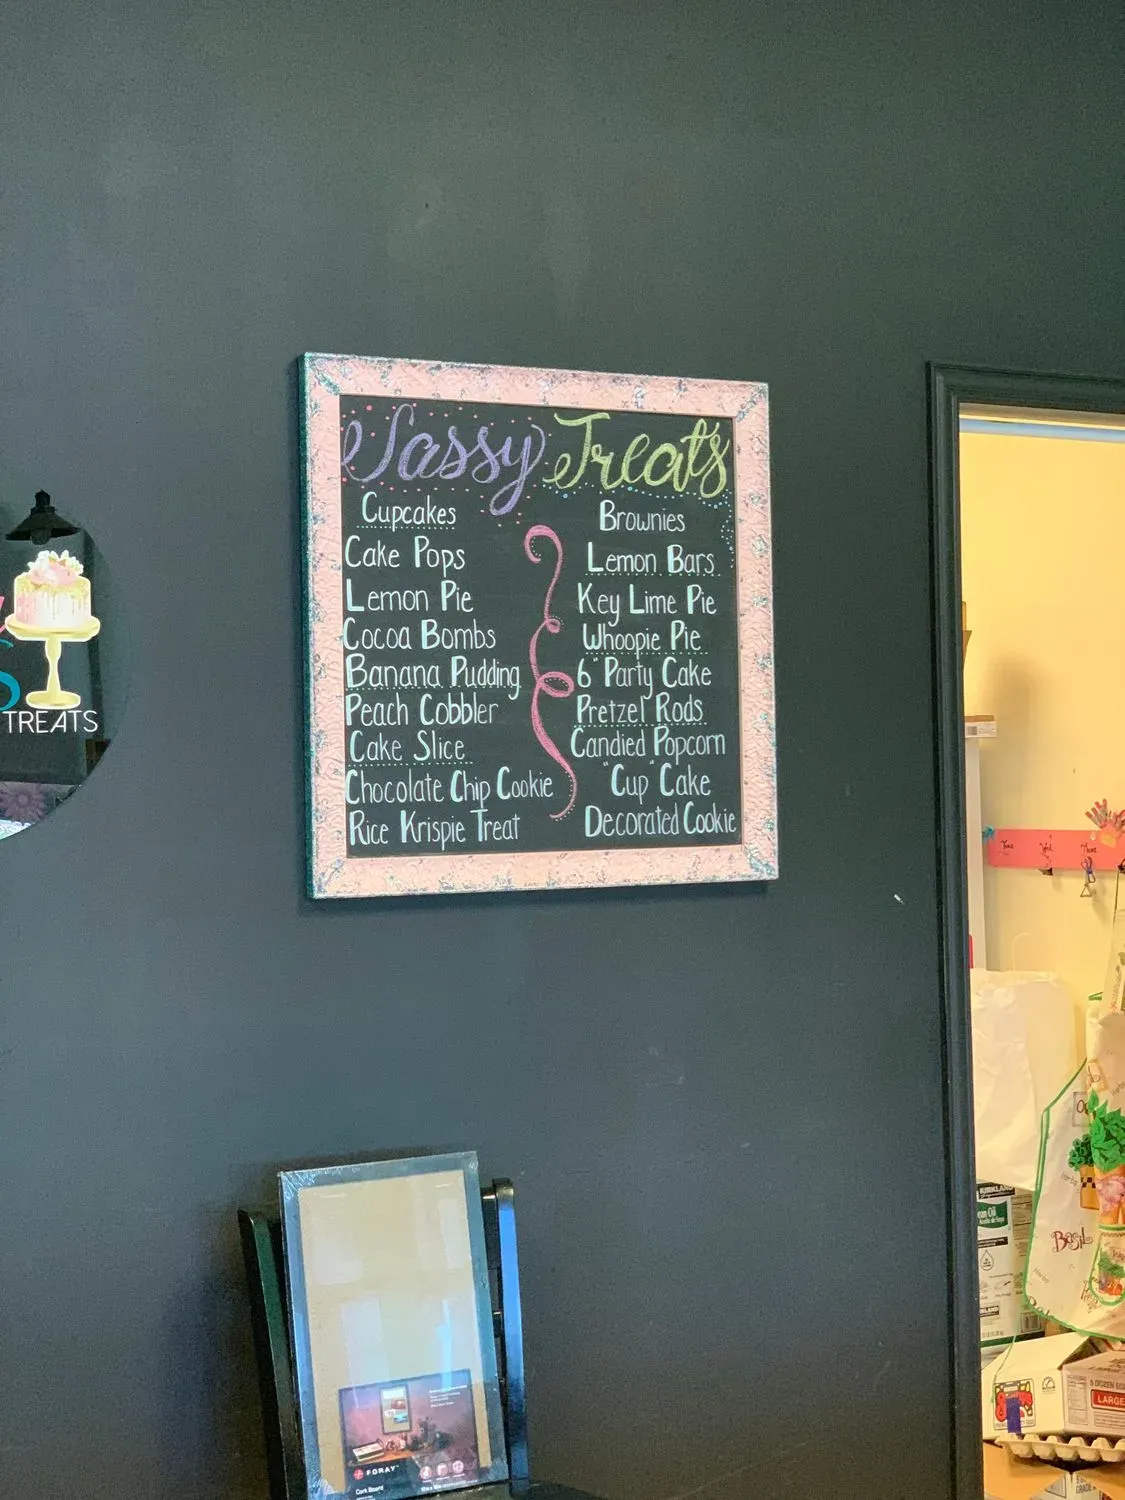 Sassy Treats
Cupcakes
Cake Pops
Lemon Pie
Cocoa Bombs
Banana Pudding
Peach Cobbler
Cake Slice
Chocolate Chip Cookie
Rice Krispie Treat
Brownies
Lemon Bars
Key Lime Pie
Whoopie Pie
6" Party Cake
Pretzel Rods
Candied Popcorn
"Cup" Cake
Decorated Cookie
TREATS
FORAY
Cork Board
Tues
Wed
Thurs
KIRKLAND
Basil
5 DOZEN
LARGE